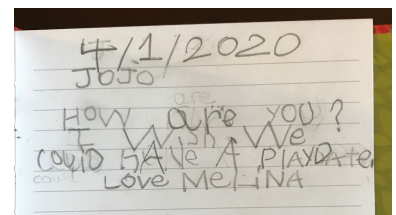 4/1/2020
JOJO
are
HOW aure YOU?
I WISH WE
COUID HAVE A PlAYDAte
could
LOVE MELINA